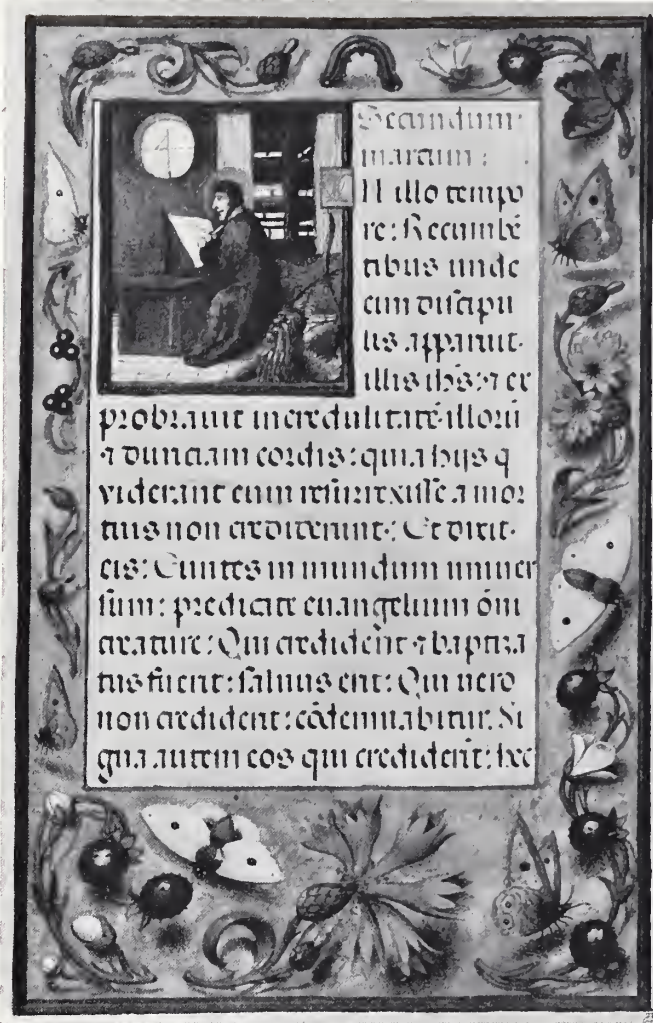 Secundum
marcum :
N illo tempo
re: Recumbē
tibus unde
cim discipu
lis apparuit·
illis ihs: ⁊ ex
probrauit incredulitatē illorū
⁊ duriciam cordis: quia hijs q
viderant eum resurrexisse a mor
tuis non crediderunt: Et dixit·
eis: Euntes in mundum univer
sum: predicate euangelium ōni
creature: Qui crediderit ⁊ baptiza
tus fuerit: saluus erit: Qui uero
non crediderit: cōdemnabitur. Si
gna autem eos qui crediderīt: hec